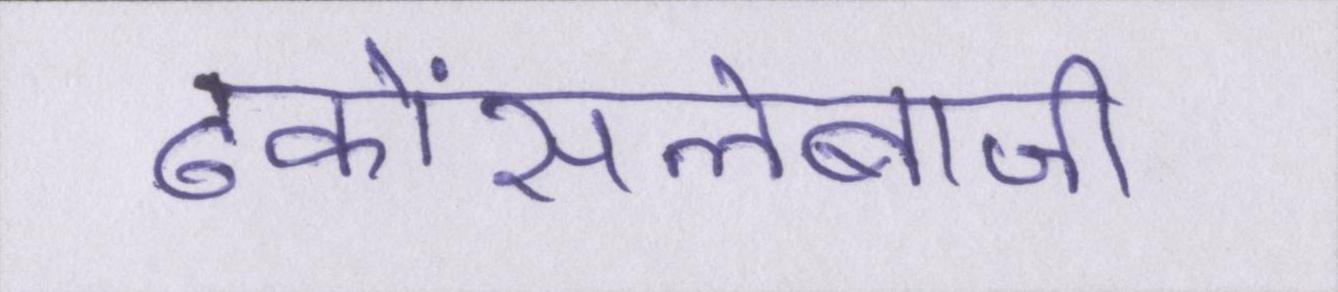 ढकोंसलेबाजी